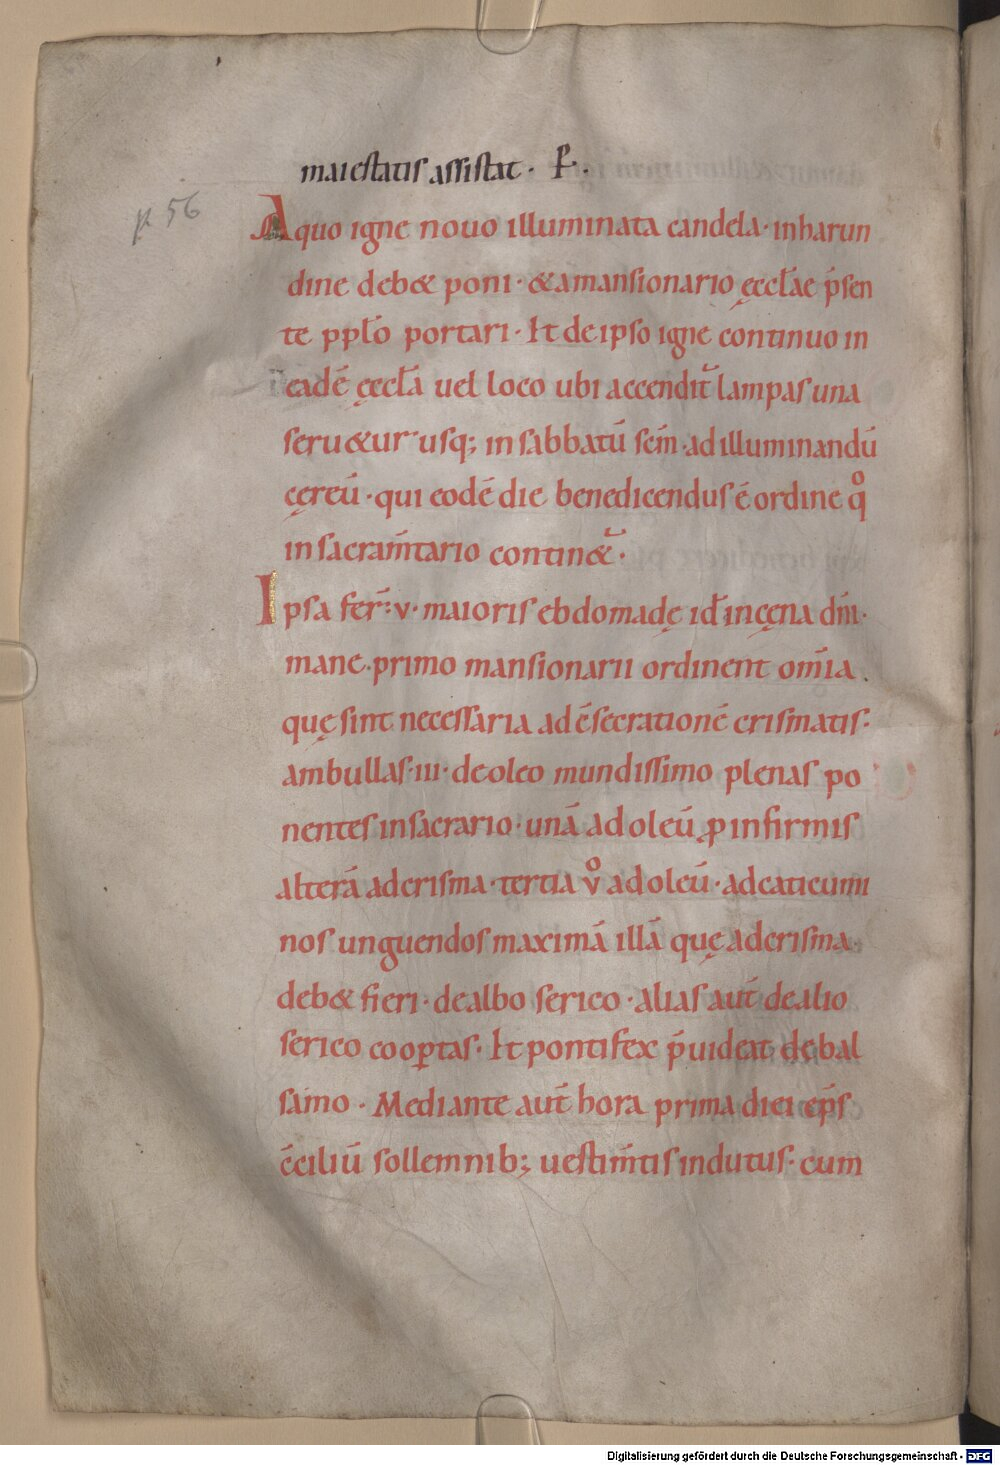 maiestatis assistat · P̄·
p. 56
A quo igne nouo illuminata candela · in harun
dine deb& poni · & a mansionario ęccl̄ae p̄sen
te ppl̄o portari · Et de ipso igne continuo in
eadē ęccl̄a uel loco ubi accendit᷑ lampas una
seru&ur usq; in sabbatū sc̄m · ad illuminandū
cęreū · qui eodē die benedicendus ē ordine qͦ
in sacram̄tario contin&᷑ ·
Ipsa fer̄ · v · maioris ebdomadę id ̄ in cęna dn̄i ·
mane · primo mansionarii ordinent om̄ia
quę sint necessaria ad c̄secrationē crismatis ·
ambullas · iii · de oleo mundissimo plenas po
nentes in sacrario · unā ad oleū ꝓ infirmis
alterā ad crisma · tertia vͦ ad oleū · ad caticumi
nos unguendos maximā illā quę ad crisma ·
deb& fieri · de albo serico · alias aut̄ de alio
serico coop̱tas · Et pontifex p̄uideat de bal
samo · Mediante aut̄ hora prima diei ep̄s
c̄ciliū sollemnib; uestim̄tis indutus · cum
Digitalisierung gefördert durch die Deutsche Forschungsgemeinschaft - DFG